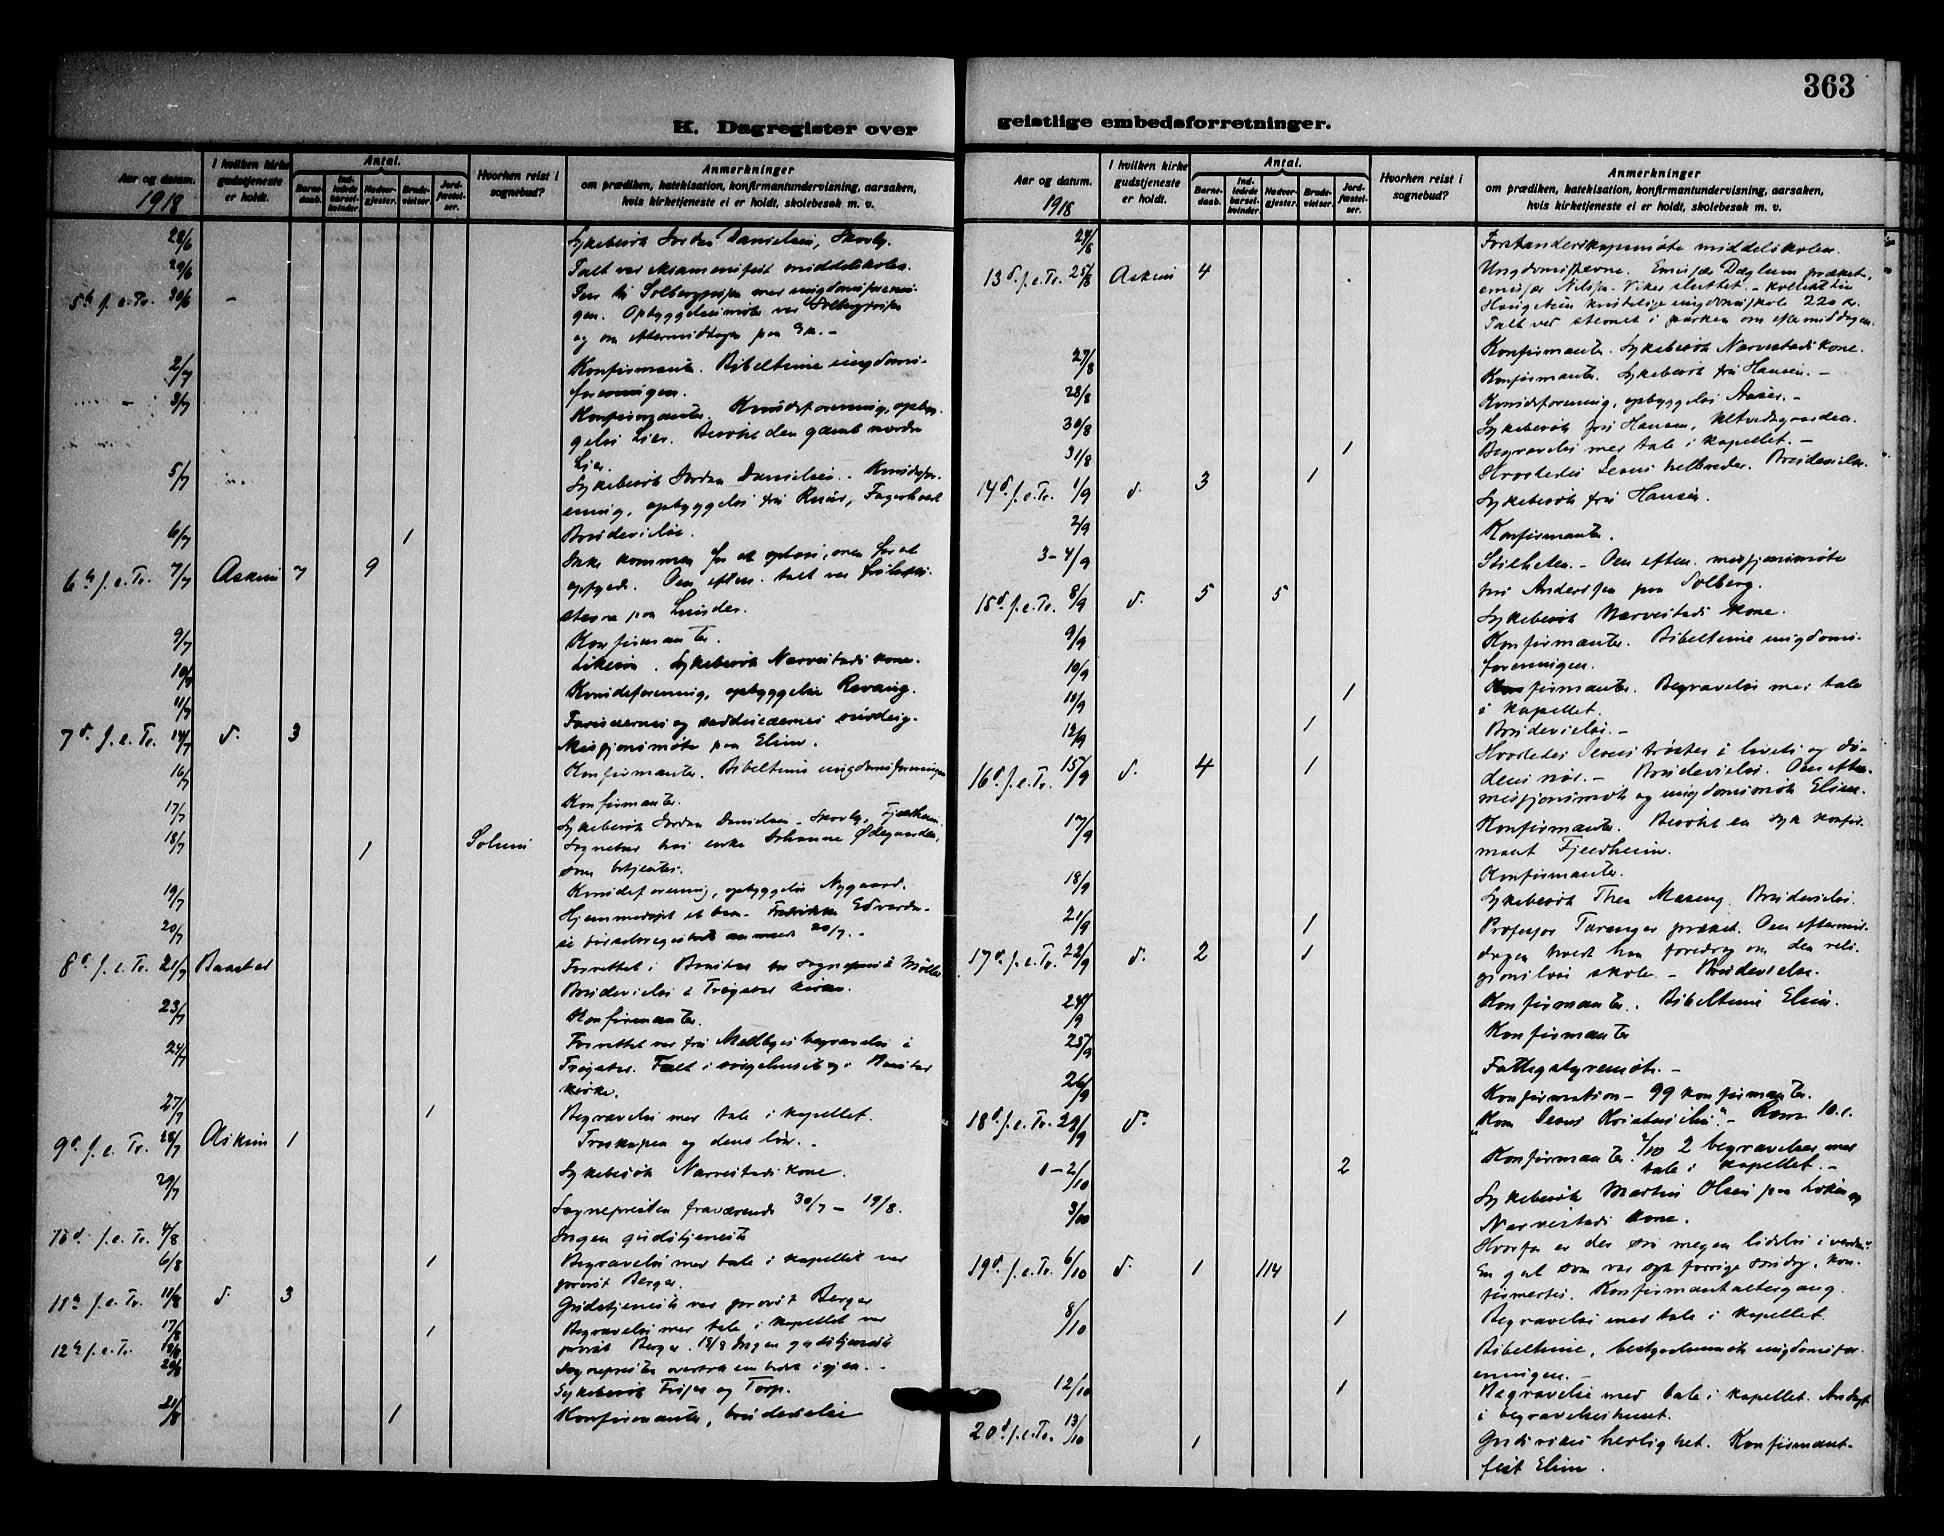 363
K. Dagregister over
geistlige embedsforretninger.
Aar og datum.
1918
I hvilken kirke
gudstjeneste
er holdt.
Antal.
Barne-
daab.
Ind-
ledede
barsel-
kvinder.
Nadver-
gjester.
Brude-
vielser.
Jord-
fæstel-
ser.
Hvorhen reist i
sognebud?
Anmerkninger
om prædiken, katekisation, konfirmantundervisning, aarsaken,
hvis kirketjeneste ei er holdt, skolebesøk m. v.
28/6 Sykebesøk Danielsen, Skovly.
29/6 Talt ved middelskolen.
5te s. e. Tr. 30/6 - med ungdomsforenin-
gen. Opbyggelsesmøte ved
og om eftermiddagen paa
2/7 Konfirmanter. Bibeltime ungdoms-
foreningen.
3/7 Konfirmanter. Kvindeforening, opbyg-
gelse Lier. Besøkt den gamle
Lier.
5/7 Sykebesøk Danielsen. Kvindefor-
ening, opbyggelse fru
6/7 1 Brudevielse.
6te s. e. Tr. 7/7 Askim 7 9 Ikke kommen for at opløse, men for at
opfylde. Om efterm. talt ved
stevne paa
9/7 Konfirmanter.
10/7 Sykebesøk Narvestads kone.
11/7 Kvindeforening, opbyggelse Revaug.
7de s. e. Tr. 14/7 d. 3 Farisæernes og saddukæernes surdeig.
Misjonsmøte paa Elim.
16/7 Konfirmanter. Bibeltime ungdomsforeningen
17/7 Konfirmanter.
Sykebesøk Danielsen, Skovly,
18/7 1 Solum Sognebud hos enke Johanne Ødegaarden,
som betjentes.
19/7 Kvindeforening, opbyggelse Nygaard.
20/7 Hjemmedøpt et barn. Fredrikke
se fødselsregistret
8de s. e. Tr. 21/7 Baastad Forrettet i Baastad for sogneprest Møller
Brudevielse i Trøgstad kirke.
23/7 Konfirmanter.
24/7 Forrettet ved fru begravelse i
Trøgstad. Talt i sørgehuset og i Baastad
kirke.
27/7 1 Begravelse med tale i kapellet.
9de s. e. Tr. 28/7 Askim 1 Troskapen og dens løn.
29/7 Sykebesøk Narvestads kone.
Sognepresten fraværende 30/7 - 19/8.
10de s. e. Tr. 4/8 Ingen gudstjeneste
6/8 1 Begravelse med tale i kapellet ved
provst Berger.
11te s. e. Tr. 11/8 d. 3 Gudstjeneste ved provst Berger
17/8 1 Begravelse med tale i kapellet ved
12te s. e. Tr. 18/8 provst Berger. 18/8 Ingen gudstjeneste
20/8 Sognepresten overtok embedet igjen.
Sykebesøk og Torp.
21/8 1 Konfirmanter, brudevielse
Aar og datum.
1918
I hvilken kirke
gudstjeneste
er holdt.
Antal.
Barne-
daab.
Ind-
ledede
barsel-
kvinder.
Nadver-
gjester.
Brude-
vielser.
Jord-
fæstel-
ser.
Hvorhen reist i
sognebud?
Anmerkninger
om prædiken, katekisation, konfirmantundervisning, aarsaken,
hvis kirketjeneste ei er holdt, skolebesøk m. v.
24/8 Forstanderskapsmøte middelskolen.
13de s. e. Tr. 25/8 Askim 4 Ungdomsstevne. Emissær Dæhlum præket,
emissær sluttet. - Kollekt til
Haugetun kristelige ungdomsskole 220 kr.
Talt ved stevnet i parken om eftermiddagen.
27/8 Konfirmanter. Sykebesøk Narvestads kone.
28/8 Konfirmanter. Sykebesøk fru Hansen. -
Kvindeforening, opbyggelse
30/8 Sykebesøk fru Hansen,
31/8 1 Begravelse med tale i kapellet. -
14de s. e. Tr. 1/9 d. 3 1 Hvorledes Jesus helbreder. Brudevielse.
2/9 Sykebesøk fru Hansen.
3-4/9 Konfirmanter.
15de s. e. Tr. 8/9 d. 5 5 Stilheten. - Om efterm. misjonsmøte
hos Andersen paa Solberg.
9/9 Sykebesøk Narvestads kone.
10/9 Konfirmanter. Bibeltime ungdoms-
foreningen.
11/9 1 Konfirmanter. Begravelse med tale
i kapellet.
12/9 1 Brudevielse. -
16de s. e. Tr. 15/9 d. 4 1 Hvorledes Jesus trøster i livets og dø-
dens nød. - Brudevielse. Om efterm.
misjonsmøte og ungdomsmøte Elim.
17/9 Konfirmanter. Besøkt en syk konfir-
mant Fjeldheim.
18/9 Konfirmanter.
21/9 1 Sykebesøk Thea Maseng. Brudevielse.
17de s. e. Tr. 22/9 d. 2 1 Professor Taranger præket. Om eftermid-
dagen holdt han foredrag om den reli-
gionsløse skole. - Brudevielse.
24/9 Konfirmanter. Bibeltime Elim.
25/9 Konfirmanter
26/9 Fattigstyremøte. -
18de s. e. Tr. 29/9 do Konfirmation - 99 konfirmanter.
1-2/10 2 Konfirmanter. 2/10 2 begravelser med
tale i kapellet. -
3/10 Sykebesøk Martin Olsen paa og
Narvestads kone.
19de s. e. Tr. 6/10 d. 1 114 Hvorfor er der saa megen lidelse i verden?
En gut som var syk forrige søndag, kon-
firmertes. Konfirmantaltergang.
8/10 1 Begravelse med tale i kapellet.
Bibeltime, bestyrelsesmøte ungdomsfor-
eningen. -
12/10 1 Begravelse med tale i kapellet. Andagt
i begravelseshuset.
20de s. e. Tr. 13/10 1 Guds rikes herlighet. Konfirmant-
fest Elim.